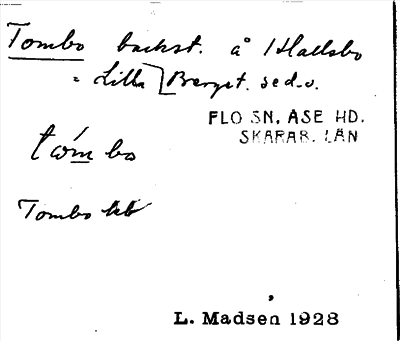 Tombo backst. å Hallebo
= Lilla Berget. se d.o.
FLO SN, ÅSE HD.
SKARAB. LÄN
tómbo
Tombo kb
L. Madsen 1928